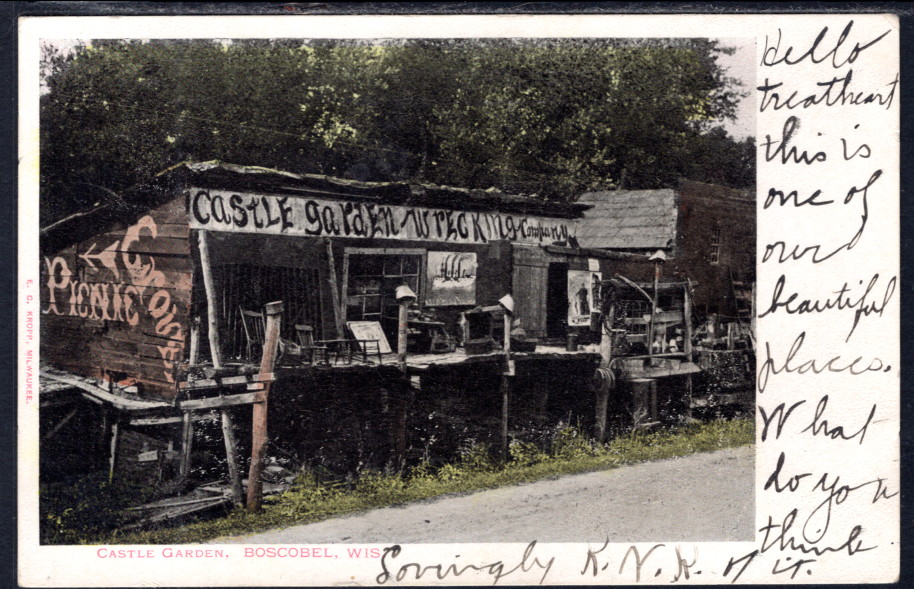 Hello
treatheart
this is
one of
our
beautiful
places.
What
do you
think
of it.
Lovingly K. N. K.
CASTLE GARDEN WRECKING Company
PICNIC GROUNDS
E. C. KROPP, MILWAUKEE.
CASTLE GARDEN, BOSCOBEL, WIS